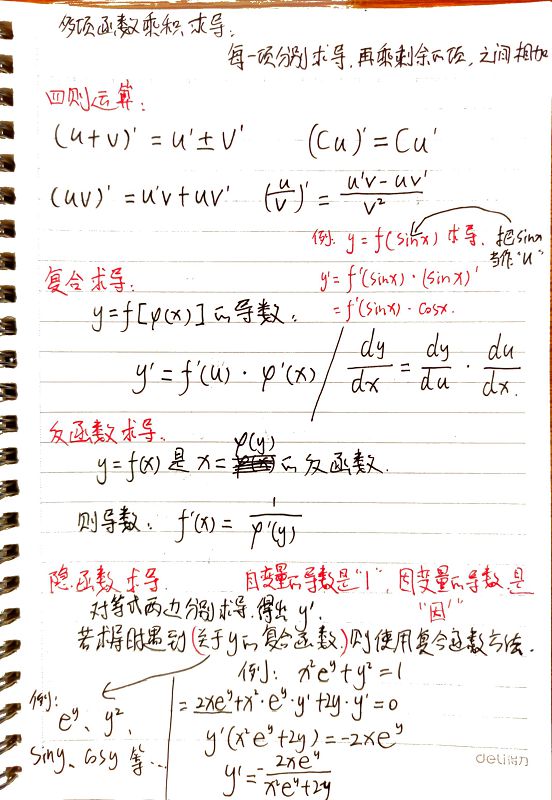 多项函数乘积求导.
每一项分别求导,再乘剩余的项,之间相加
四则运算:
(u+v)' = u'±v' (Cu)' = Cu'
(uv)' = u'v+uv' (u/v)' = (u'v-uv')/v²
例: y=f(sinx) 求导. 把sinx
当作"u"
y'=f'(sinx)·(sinx)'
=f'(sinx)·cosx.
复合求导:
y=f[φ(x)]的导数:
y'=f'(u)·φ'(x) / dy/dx = dy/du · du/dx.
反函数求导.
y=f(x) 是 x=φ(y) 的反函数.
则导数: f'(x) = 1/φ'(y)
隐函数求导. 自变量的导数是"1",因变量的导数是
"因'"
对等式两边分别求导,得出 y'.
若求导时遇到(关于y的复合函数)则使用复合函数方法.
例: x²e^y+y²=1
例:
e^y、y²、
siny、cosy 等...
=2xe^y+x²·e^y·y'+2y·y'=0
y'(x²e^y+2y)=-2xe^y
y'=-2xe^y/(x²e^y+2y)
deli得力